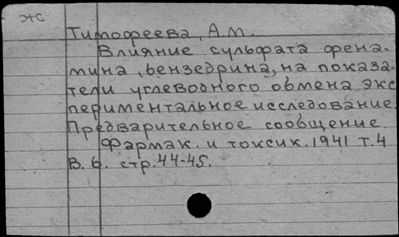 ЖС
Тимофеева, А.М.
Влияние сульфата фена-
мина, бензедрина, на показа-
тели углеводного обмена экс
периментальное исследование.
Предварительное сообщение.
Фармак. и токсик. 1941 т.4
В. 6. стр. 44-45.